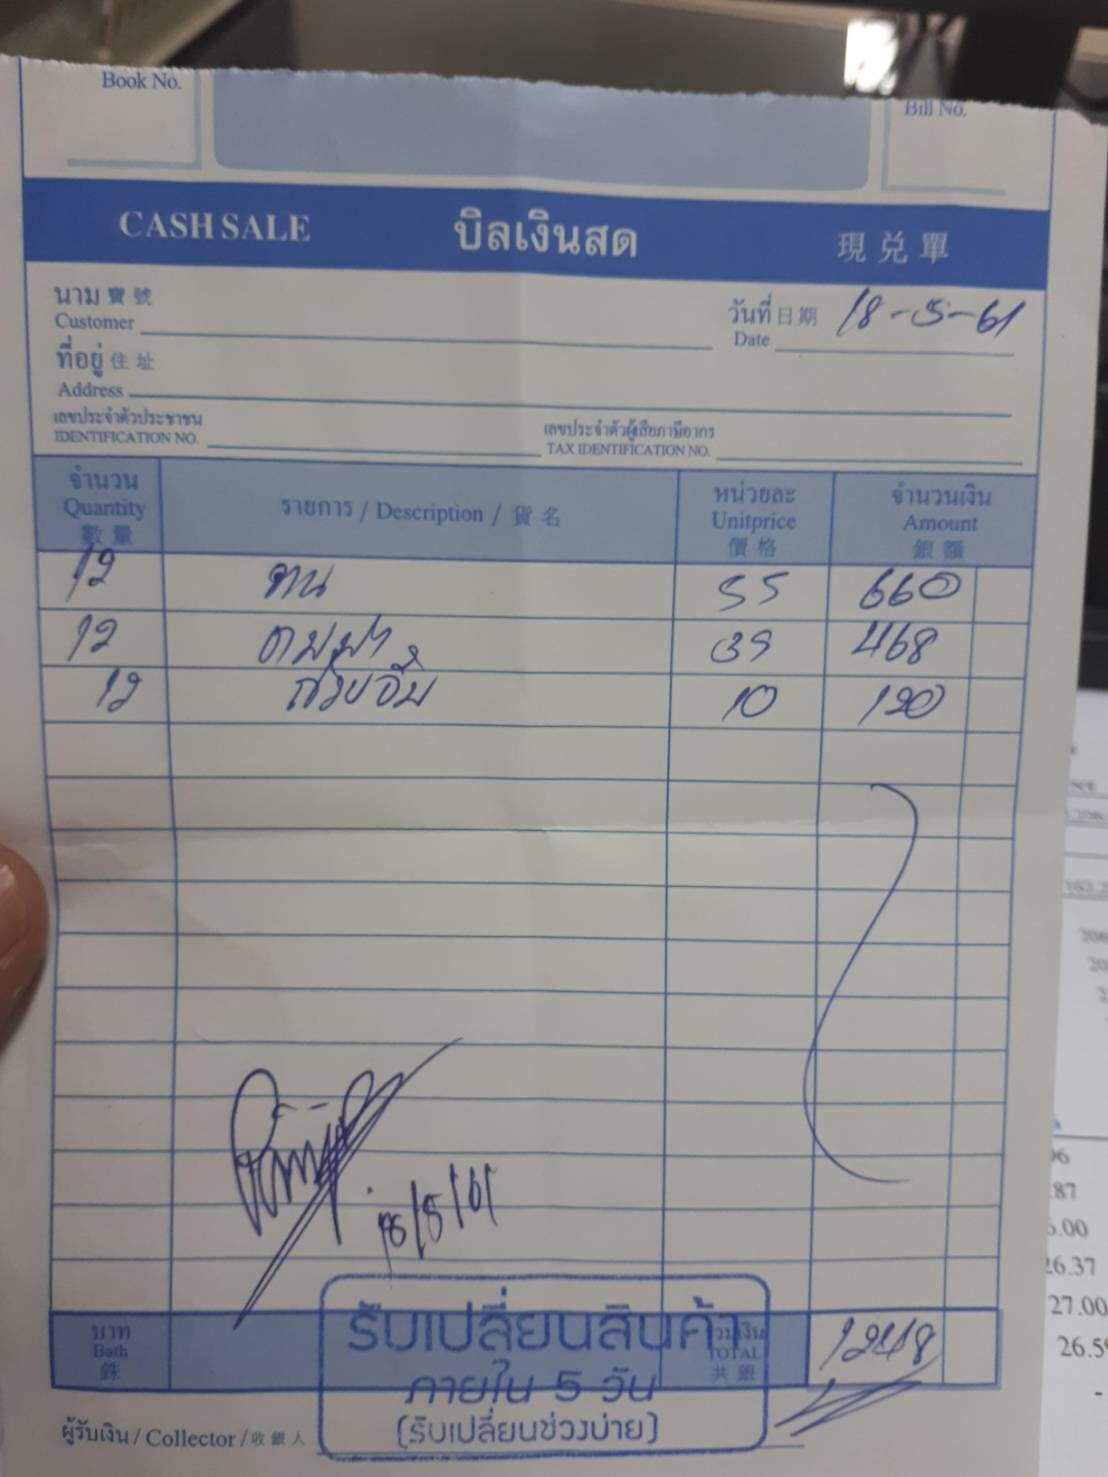 Book No.
Bill No.
CASH SALE บิลเงินสด 現兌單
นาม 寶號
Customer
วันที่ 日期 18-5-61
Date
ที่อยู่ 住址
Address
เลขประจำตัวประชาชน
IDENTIFICATION NO.
เลขประจำตัวผู้เสียภาษีอากร
TAX IDENTIFICATION NO.
จำนวน
Quantity
數量
รายการ / Description / 貨名
หน่วยละ
Unitprice
價格
จำนวนเงิน
Amount
銀額
12 55 660
12 39 468
12 10 120
18/5/61
บาท
Bath
銖
รวมเงิน
TOTAL
共銀
1248
รับเปลี่ยนสินค้า
ภายใน 5 วัน
(รับเปลี่ยนช่วงบ่าย)
ผู้รับเงิน / Collector / 收銀人
06
.87
6.00
26.37
27.00